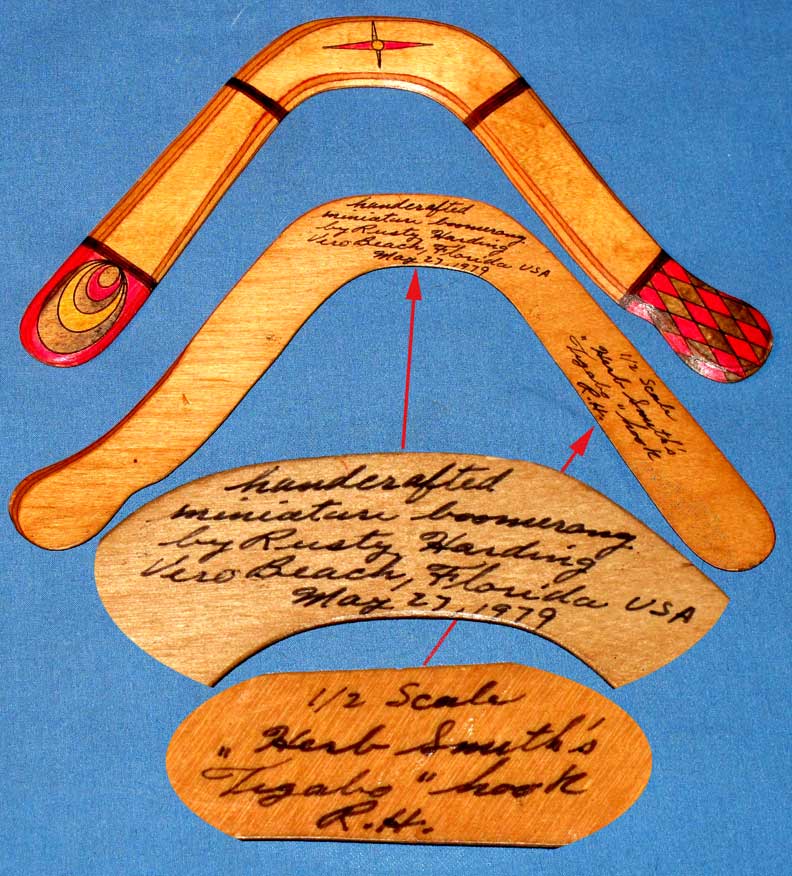 handcrafted
miniature boomerang
by Rusty Harding
Vero Beach, Florida USA
May 27, 1979
1/2 Scale
Herb Smith's
"Tigabo" hook
R.H.
handcrafted
miniature boomerang
by Rusty Harding
Vero Beach, Florida USA
May 27, 1979
1/2 Scale
Herb Smith's
"Tigabo" hook
R.H.